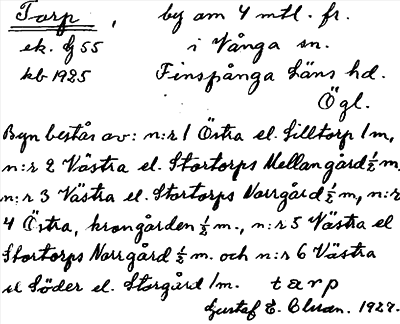 Torp, by om 4 mtl. fr.
ek. bl 55 i Vånga sn.
kb 1925 Finspånga läns hd.
Ögl.
Byn består av: n:r 1 Östra el. Lilltorp 1 m,
n:r 2 Västra el. Stortorps Mellangård ½ m,
n:r 3 Västra el. Stortorps Norrgård ½ m, n:r
4 Östra, krongården ½ m., n:r 5 Västra el
Stortorps Norrgård ½ m. och n:r 6 Västra
el Söder el. Storgård 1 m. tarp
Gustaf E. Olson. 1927.